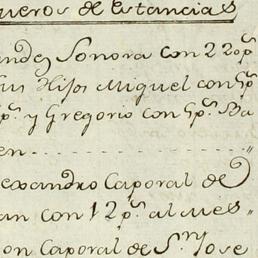 ueros de Estancias
andez Sonora con 220p.s
us Hijos Miguel con 9p.s
p.s y Gregorio con 9p.s Ba
en
lexandro Caporal de
an con 12p.s al mes
on Caporal de S.n Jose